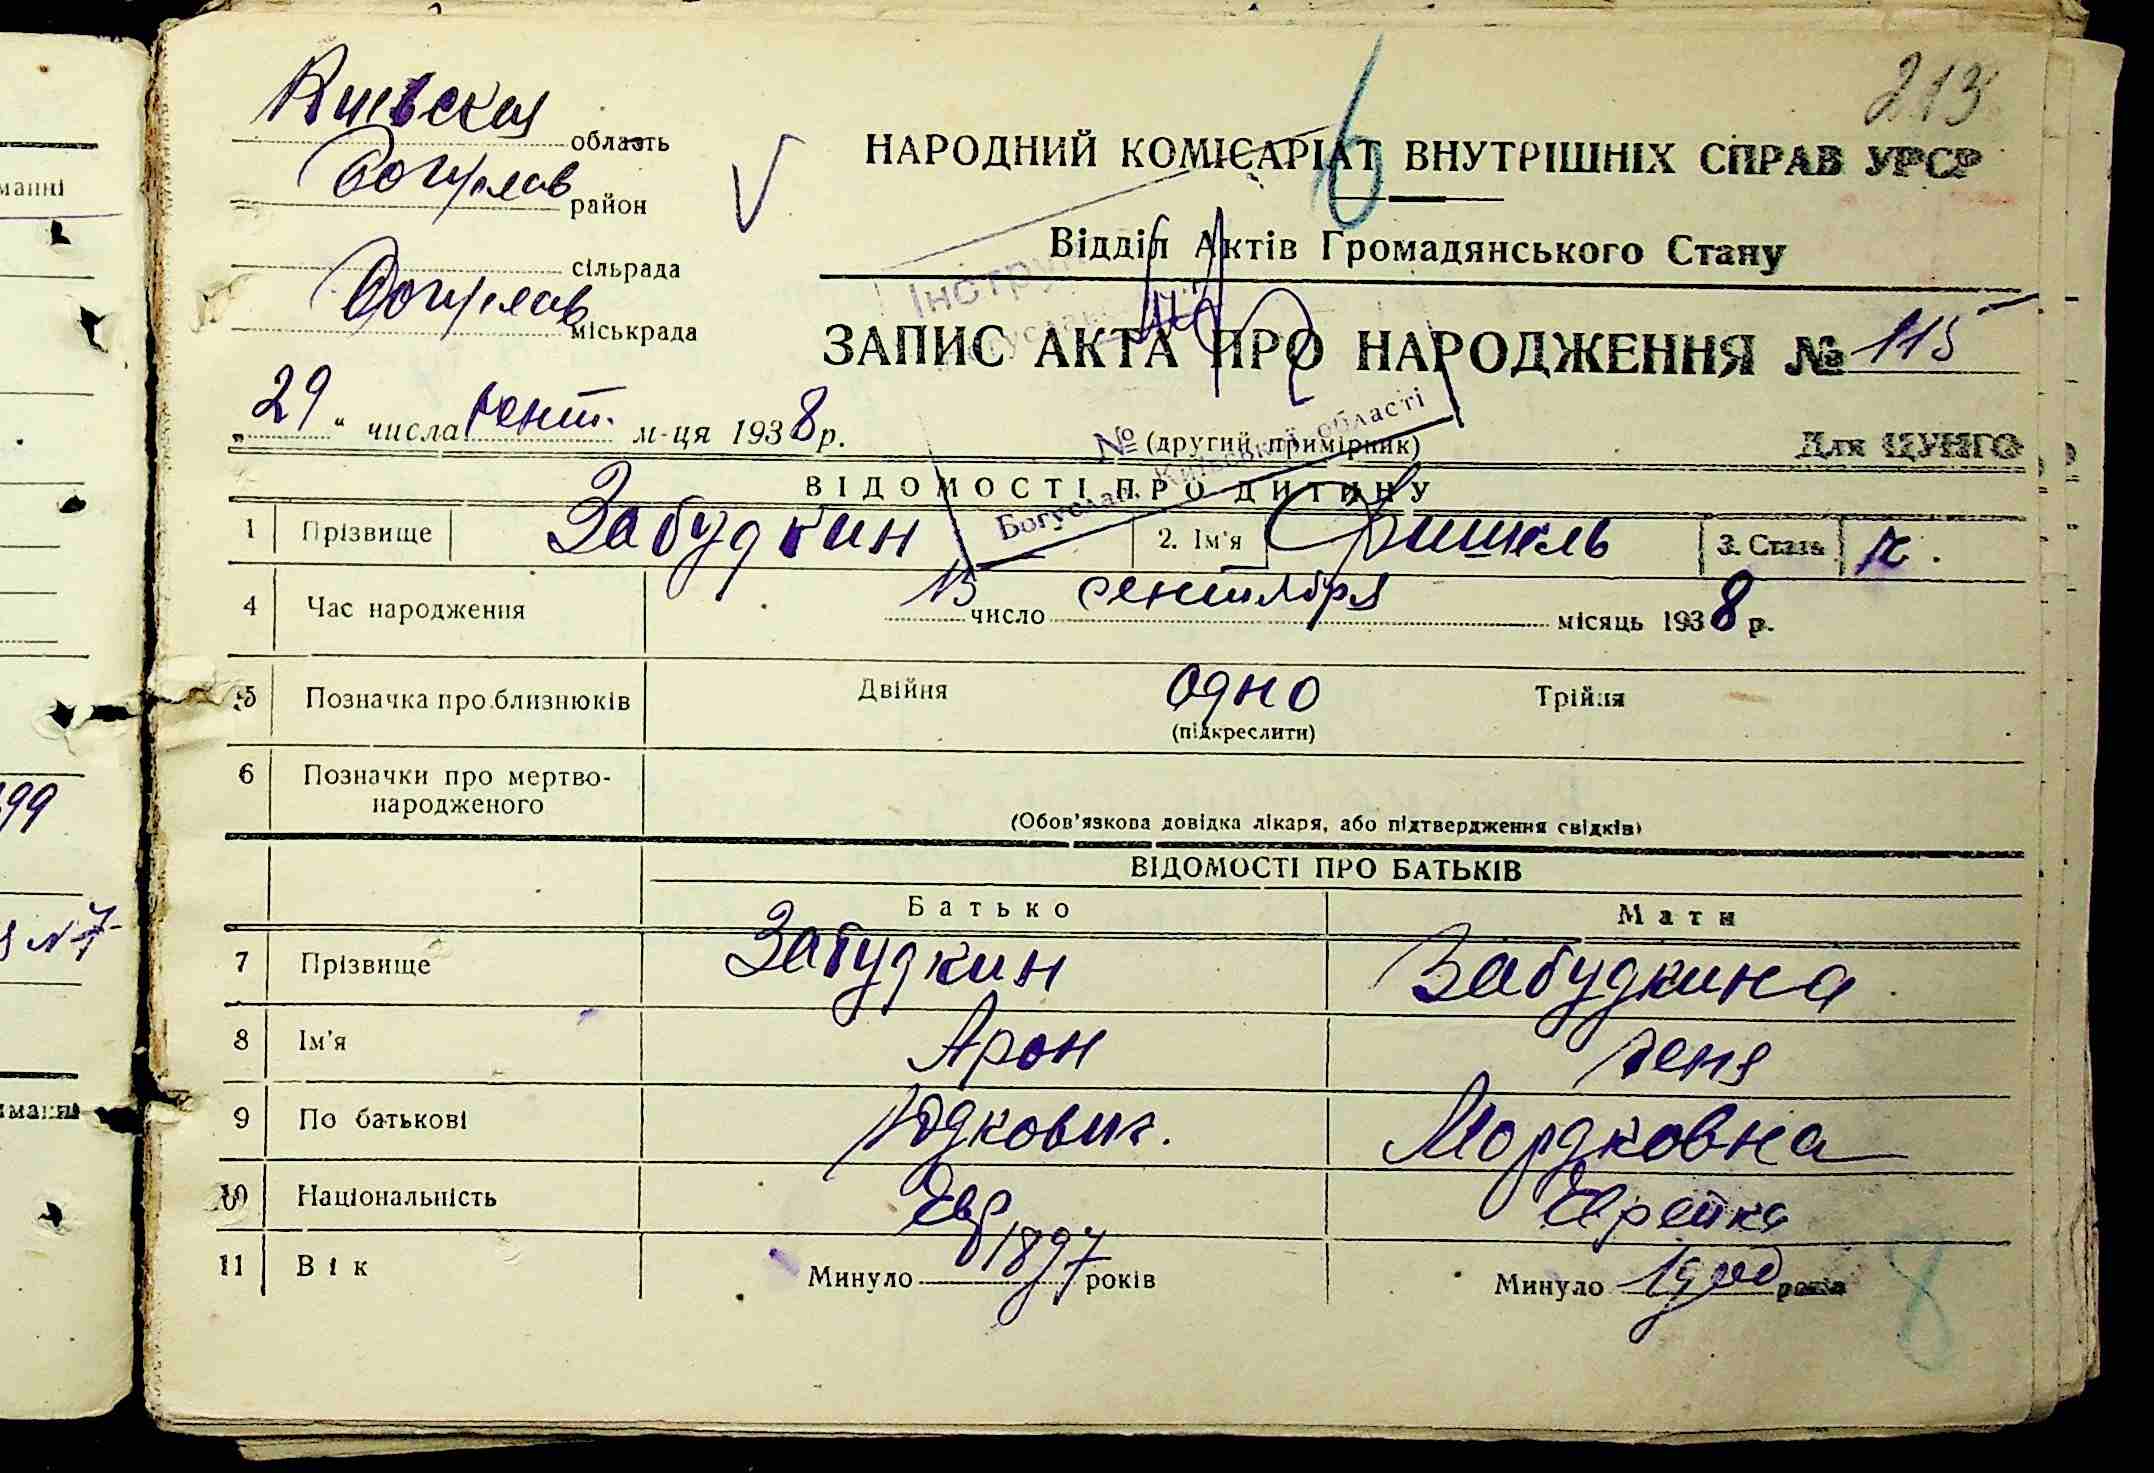 213
Киевская область
Богуслав район
сільрада
Богуслав міськрада
НАРОДНИЙ КОМІСАРІАТ ВНУТРІШНІХ СПРАВ УРСР
6
Відділ Актів Громадянського Стану
ЗАПИС АКТА ПРО НАРОДЖЕННЯ № 115
„29“ числа сент. м-ця 1938 р.
№ (другий примірник)
Для ЦУНГО
Богуслав, Київської області
ВІДОМОСТІ ПРО ДИТИНУ
1 Прізвище Забудкин 2. Ім'я Фишель 3. Стать
4 Час народження 15 число сентября місяць 1938 р.
5 Позначка про близнюків Двійня одно Трійня
(підкреслити)
6 Позначки про мертво-
народженого
(Обов'язкова довідка лікаря, або підтвердження свідків)
ВІДОМОСТІ ПРО БАТЬКІВ
Батько Мати
7 Прізвище Забудкин Забудкина
8 Ім'я Арон
9 По батькові Юдкович. Мордковна
10 Національність Евр Еврейка
11 Вік Минуло 1897 років Минуло 1900 років
8
99
N7